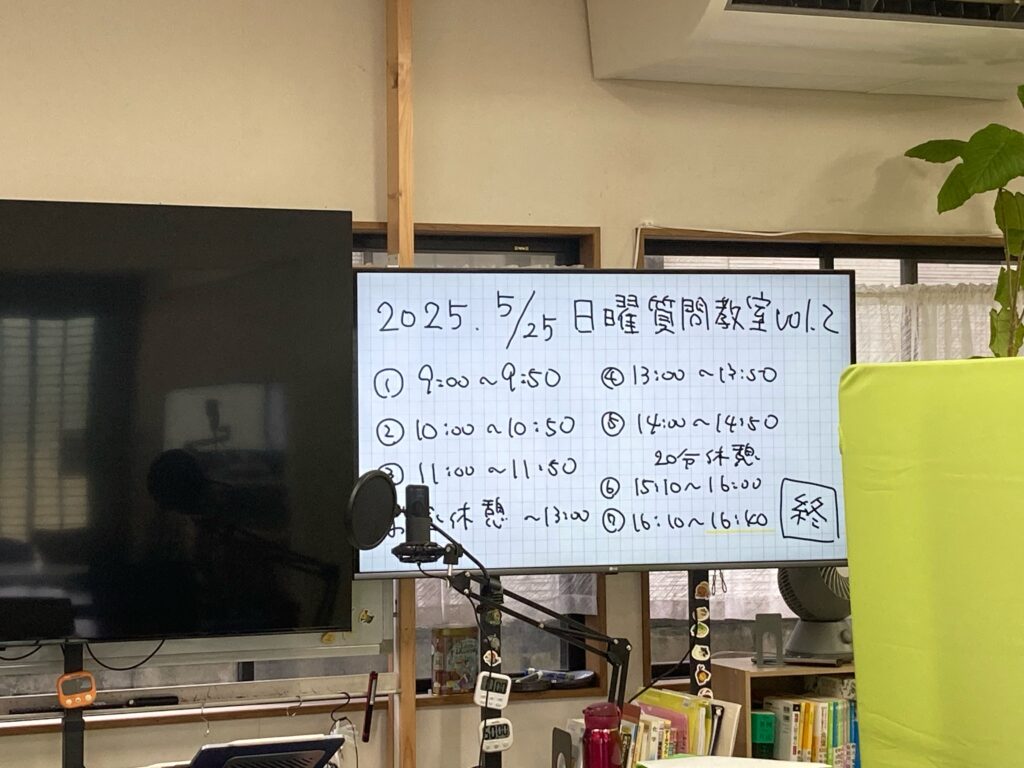 2025. 5/25 日曜質問教室 vol.2
① 9:00～9:50
② 10:00～10:50
③ 11:00～11:50
休憩 ～13:00
④ 13:00～13:50
⑤ 14:00～14:50
20分休憩
⑥ 15:10～16:00
⑦ 16:10～16:40
終